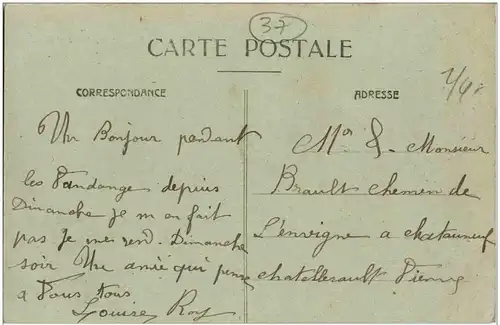 37
CARTE POSTALE
CORRESPONDANCE
Un Bonjour pendant
les Vandange depuis
Dimanche je m en fait
pas Je me rend. Dimanche
soir Une amie qui pense
a Vous tous
Louise Roy
ADRESSE
Mr & Monsieur
Brault chemin de
L'envigne a chatauneuf
chatellerault Vienne